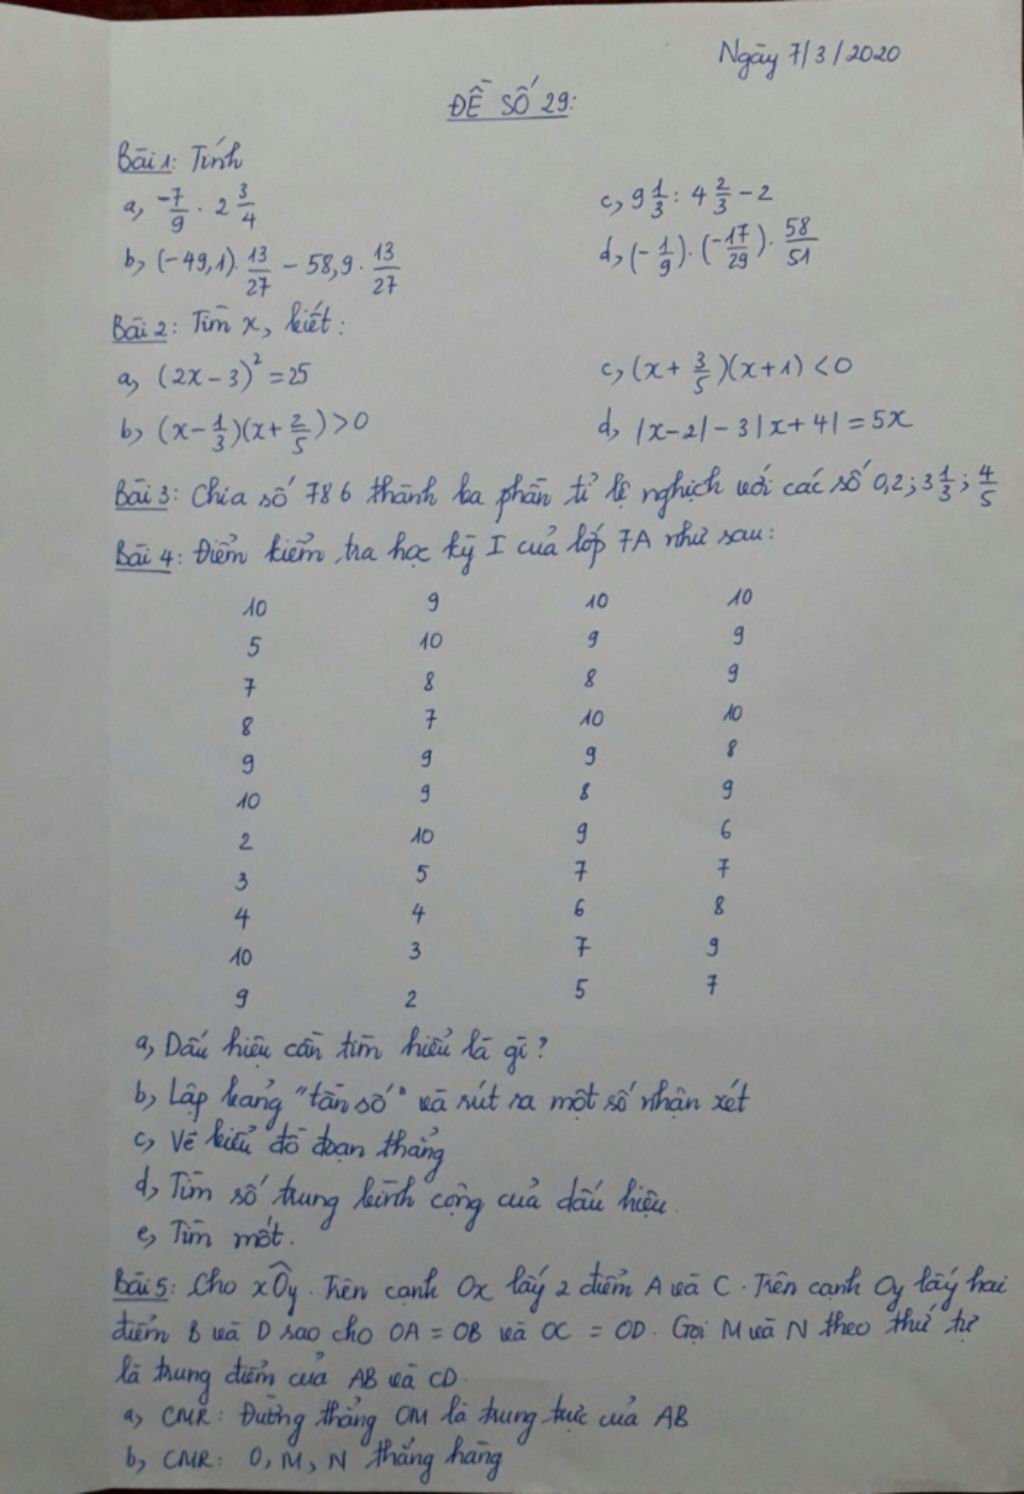 Ngày 7/3/2020
ĐỀ SỐ 29:
Bài 1: Tính
a, -7/9 . 2 3/4
c, 9 1/3 : 4 2/3 - 2
b, (-49,1). 13/27 - 58,9 . 13/27
d, (-1/9).(-17/29). 58/51
Bài 2: Tìm x, biết:
a, (2x - 3)² = 25
c, (x + 3/5)(x+1) < 0
b, (x - 1/3)(x + 2/5) > 0
d, |x-2| - 3|x+4| = 5x
Bài 3: Chia số 786 thành ba phần tỉ lệ nghịch với các số 0,2; 3 1/3; 4/5
Bài 4: Điểm kiểm tra học kỳ I của lớp 7A như sau:
10 9 10 10
5 10 9 9
7 8 8 9
8 7 10 10
9 9 9 8
10 9 8 9
2 10 9 6
3 5 7 7
4 4 6 8
10 3 7 9
9 2 5 7
a, Dấu hiệu cần tìm hiểu là gì?
b, Lập bảng "tần số" và rút ra một số nhận xét
c, Vẽ biểu đồ đoạn thẳng
d, Tìm số trung bình cộng của dấu hiệu.
e, Tìm mốt.
Bài 5: Cho xÔy. Trên cạnh Ox lấy 2 điểm A và C. Trên cạnh Oy lấy hai
điểm B và D sao cho OA = OB và OC = OD. Gọi M và N theo thứ tự
là trung điểm của AB và CD.
a, CMR: Đường thẳng OM là trung trực của AB
b, CMR: O, M, N thẳng hàng